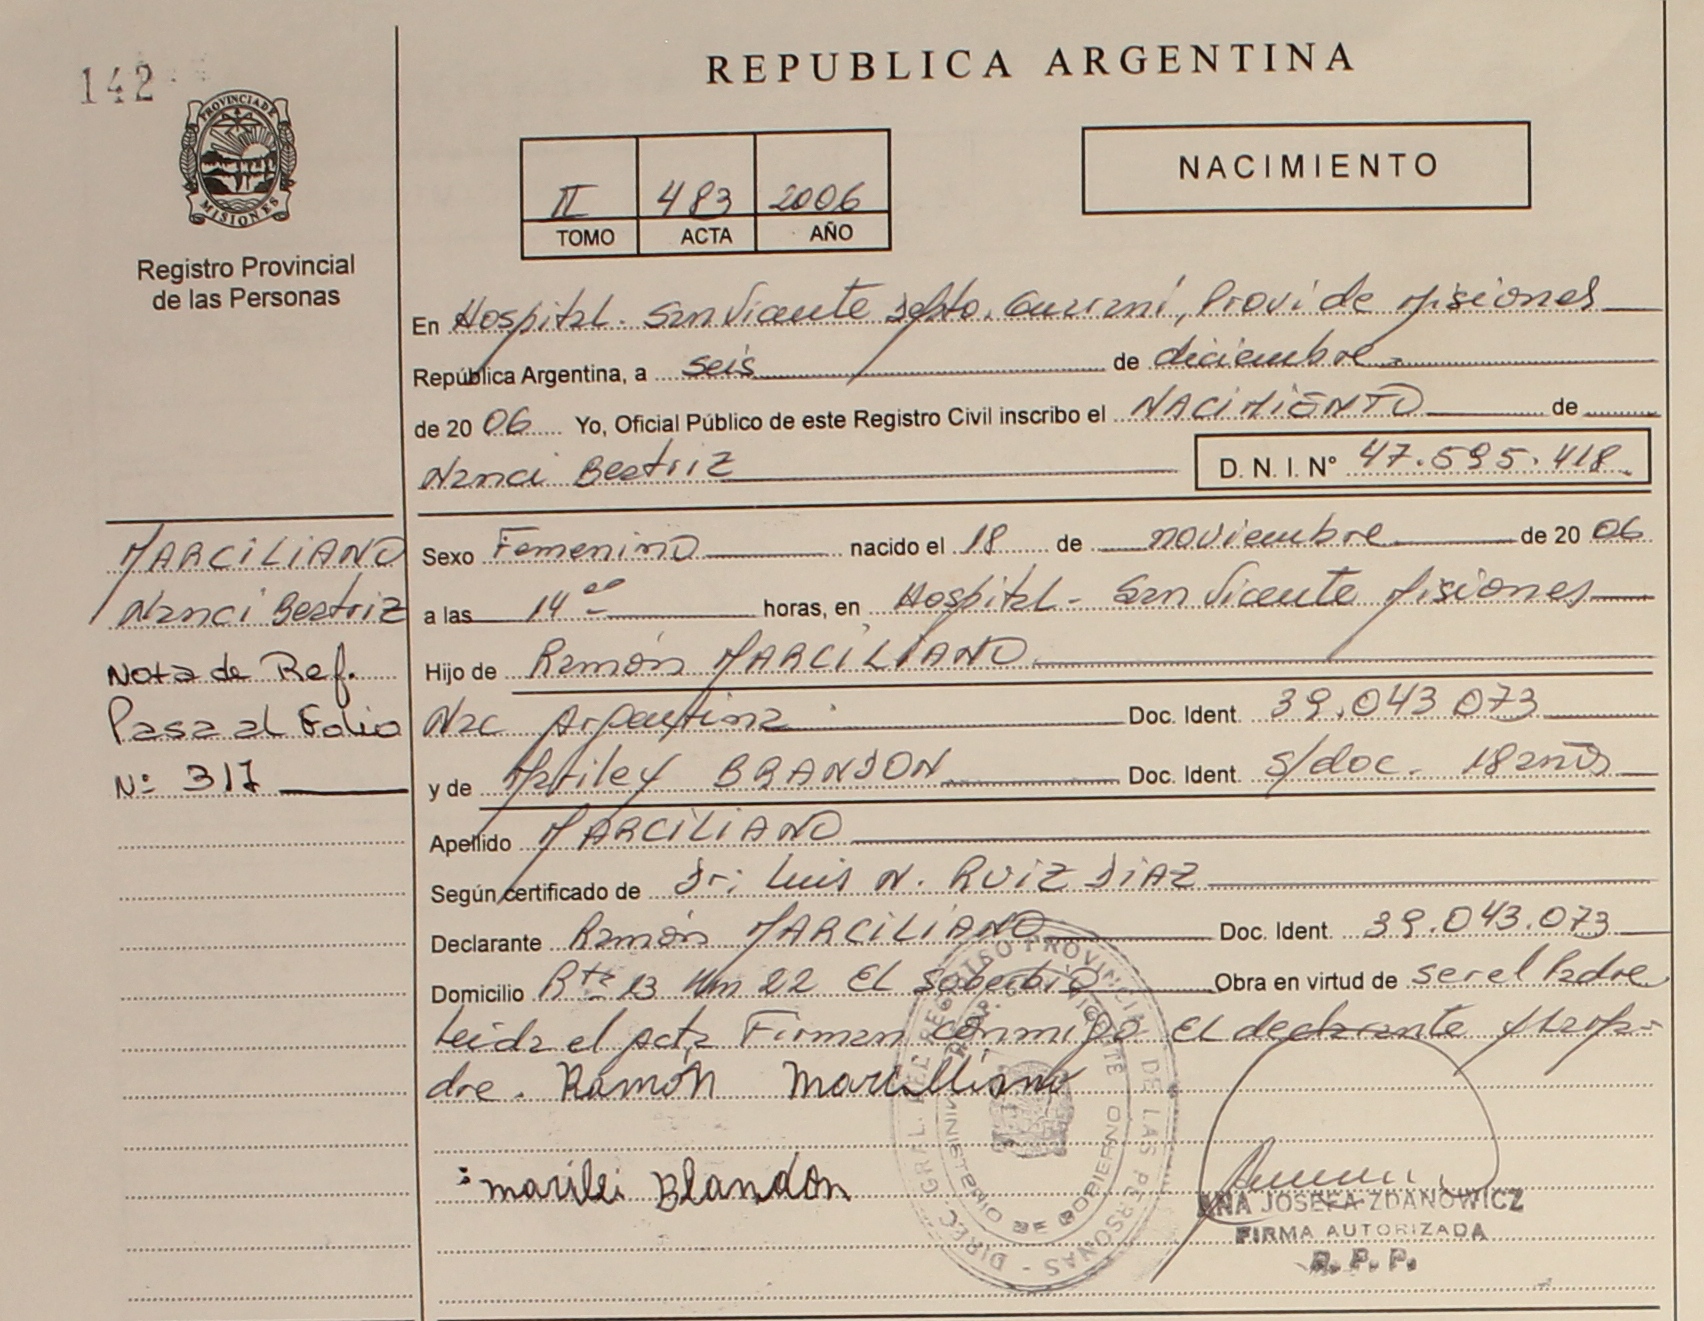 142
PROVINCIA DE
MISIONES
Registro Provincial
de las Personas
REPUBLICA ARGENTINA
II 483 2006
TOMO ACTA AÑO
NACIMIENTO
En Hospital - San Vicente Depto. Guaraní, Prov. de Misiones
República Argentina, a seis de diciembre
de 2006 Yo, Oficial Público de este Registro Civil inscribo el NACIMIENTO de
Nanci Beatriz D. N. I. N° 47.595.418
MARCILIANO
Nanci Beatriz
Nota de Ref.
Pasa al Folio
N: 317
Sexo Femenino nacido el 18 de noviembre de 2006
a las 14 00 horas, en Hospital - San Vicente Misiones
Hijo de Ramón MARCILIANO
Nac Argentina Doc. Ident. 39.043.073
y de Mariley BRANDON Doc. Ident. s/doc. 18 años
Apellido MARCILIANO
Según certificado de Dr: Luis N. RUIZ DIAZ
Declarante Ramón MARCILIANO Doc. Ident. 39.043.073
Domicilio Rta 13 Km 22 El Soberbio Obra en virtud de ser el Padre
Leida el Acta Firman conmigo El declarante y la Ma-
dre. Ramón Marciliano
marilei Blandon
DIREC. GRAL. DEL REGISTRO PROVINCIAL DE LAS PERSONAS
MINISTERIO DE GOBIERNO
ANA JOSEFA ZDANOWICZ
FIRMA AUTORIZADA
R. P. P.